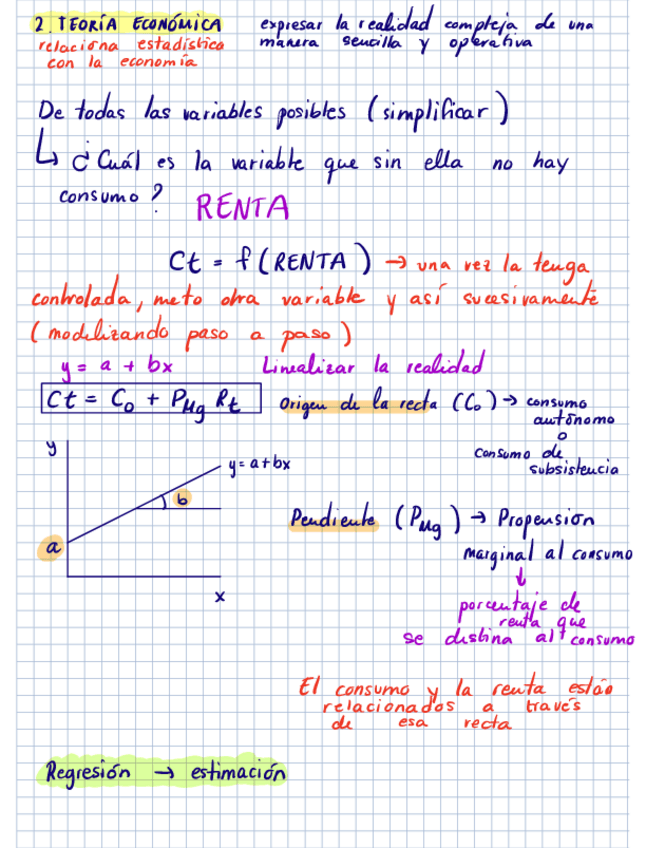 2. TEORÍA ECONÓMICA expresar la realidad compleja de una
relaciona estadística manera sencilla y operativa
con la economía
De todas las variables posibles (simplificar)
↳ ¿Cuál es la variable que sin ella no hay
consumo? RENTA
Ct = f(RENTA) → una vez la tenga
controlada, meto otra variable y así sucesivamente
(modelizando paso a paso)
y = a + bx Linealizar la realidad
Ct = C₀ + PMg Rt Origen de la recta (C₀) → consumo
autónomo
o
consumo de
subsistencia
y
y = a+bx
b
a
x
Pendiente (PMg) → Propensión
marginal al consumo
↓
porcentaje de
renta que
se destina al consumo
El consumo y la renta están
relacionados a través
de esa recta
Regresión → estimación